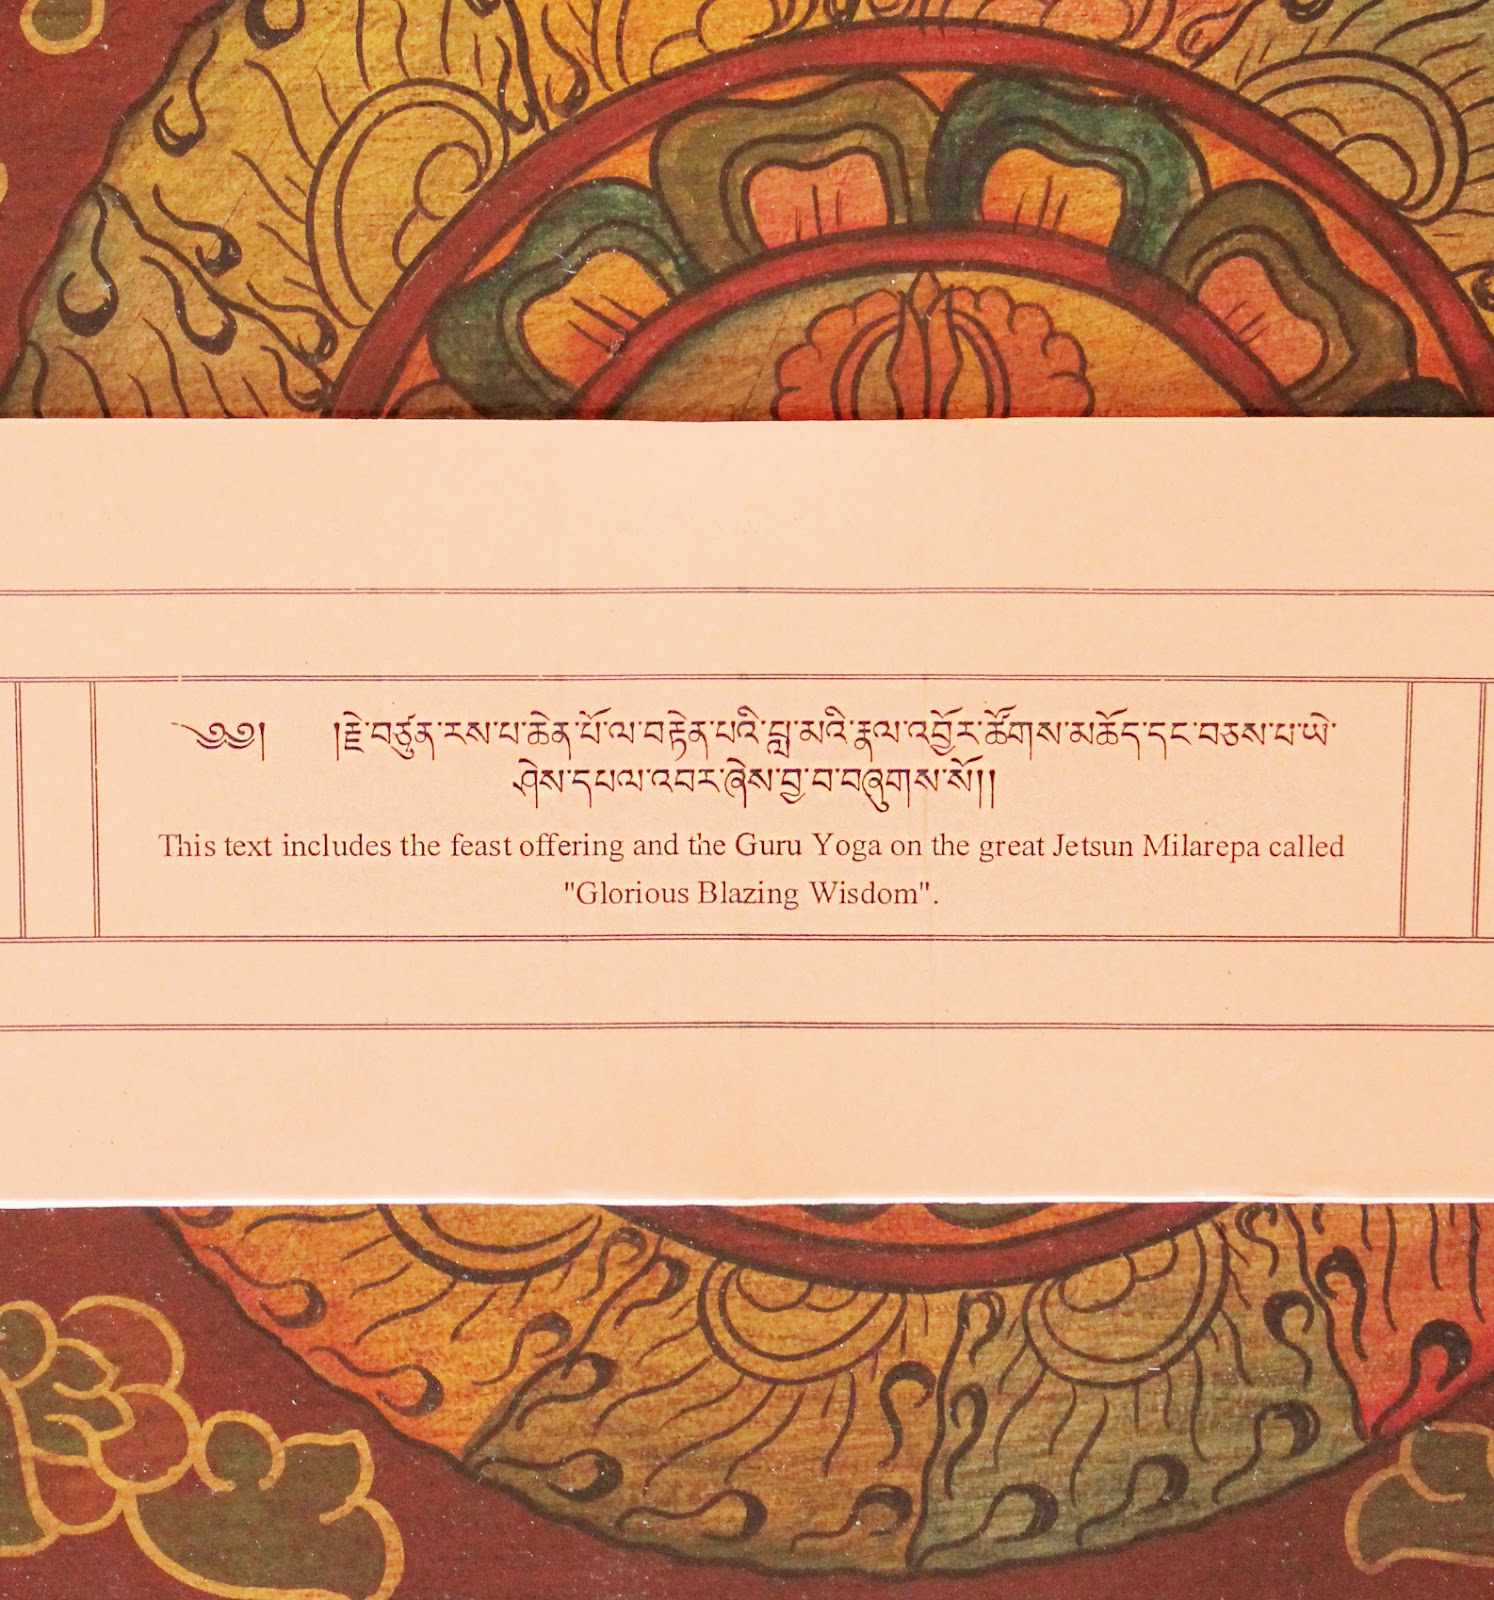 ༄༅། །རྗེ་བཙུན་རས་པ་ཆེན་པོ་ལ་བརྟེན་པའི་བླ་མའི་རྣལ་འབྱོར་ཚོགས་མཆོད་དང་བཅས་པ་ཡེ་
ཤེས་དཔལ་འབར་ཞེས་བྱ་བ་བཞུགས་སོ།།
This text includes the feast offering and the Guru Yoga on the great Jetsun Milarepa called
"Glorious Blazing Wisdom".